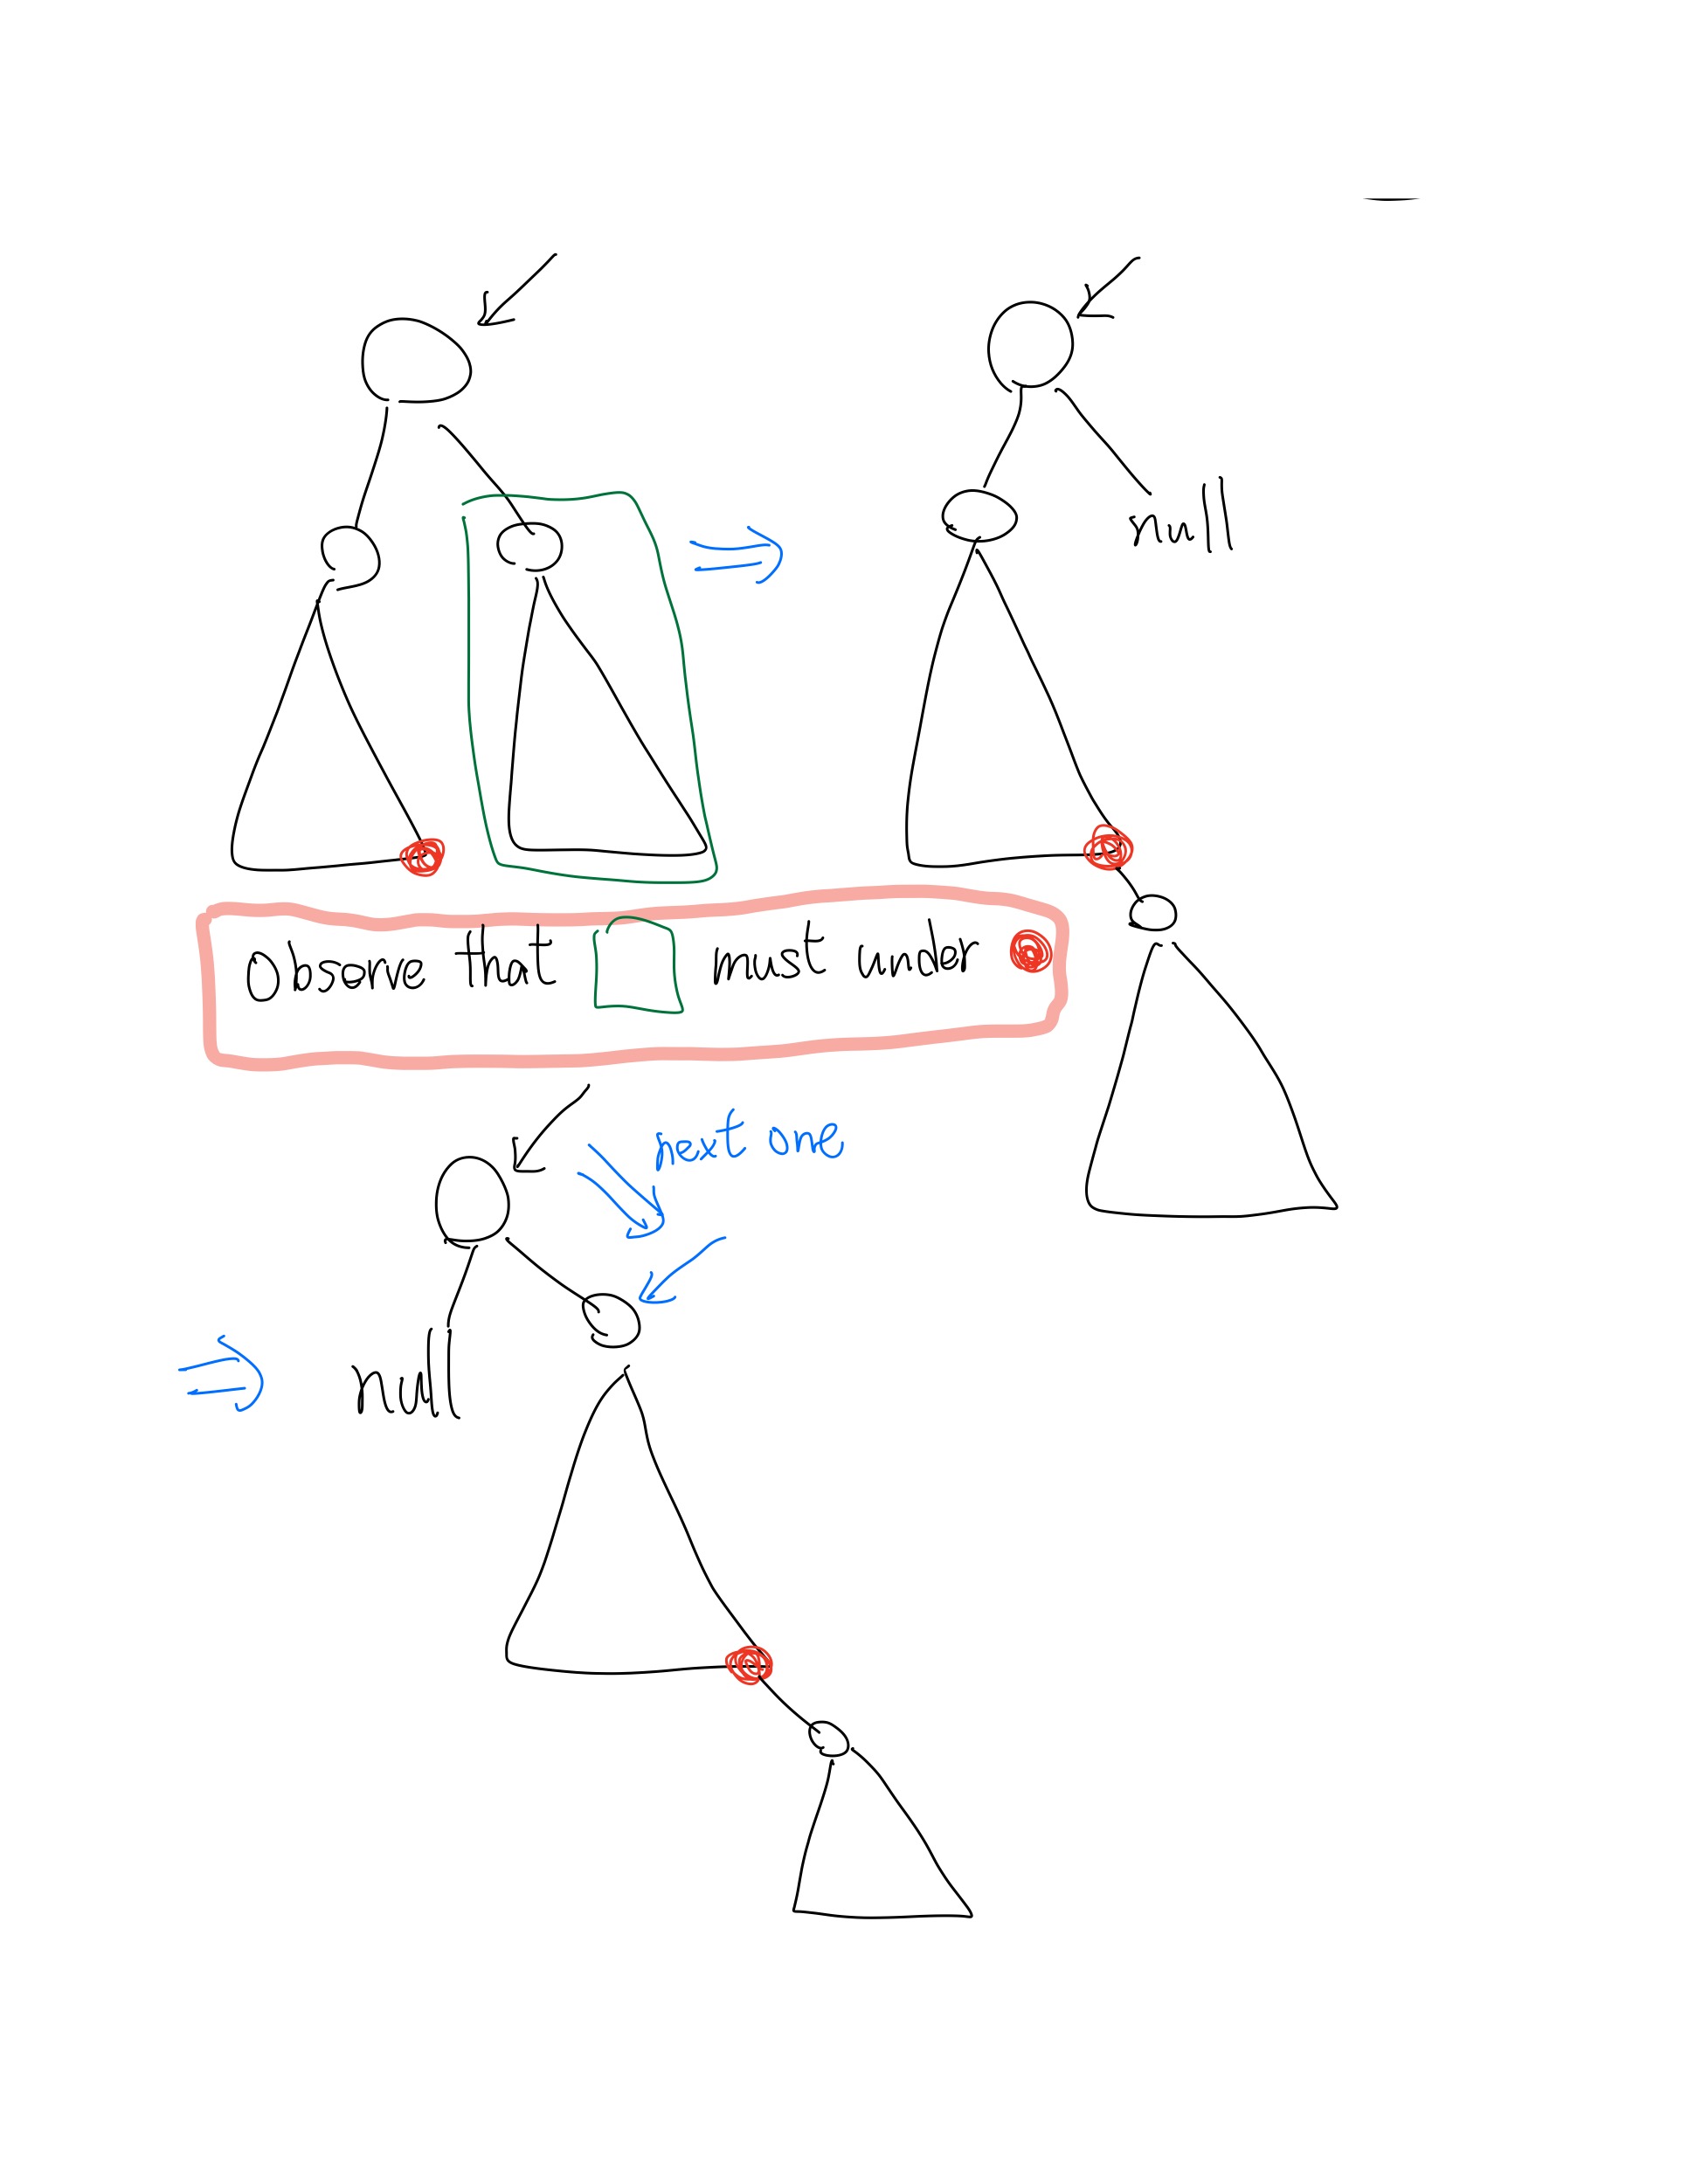 null
Observe that must under
next one
null